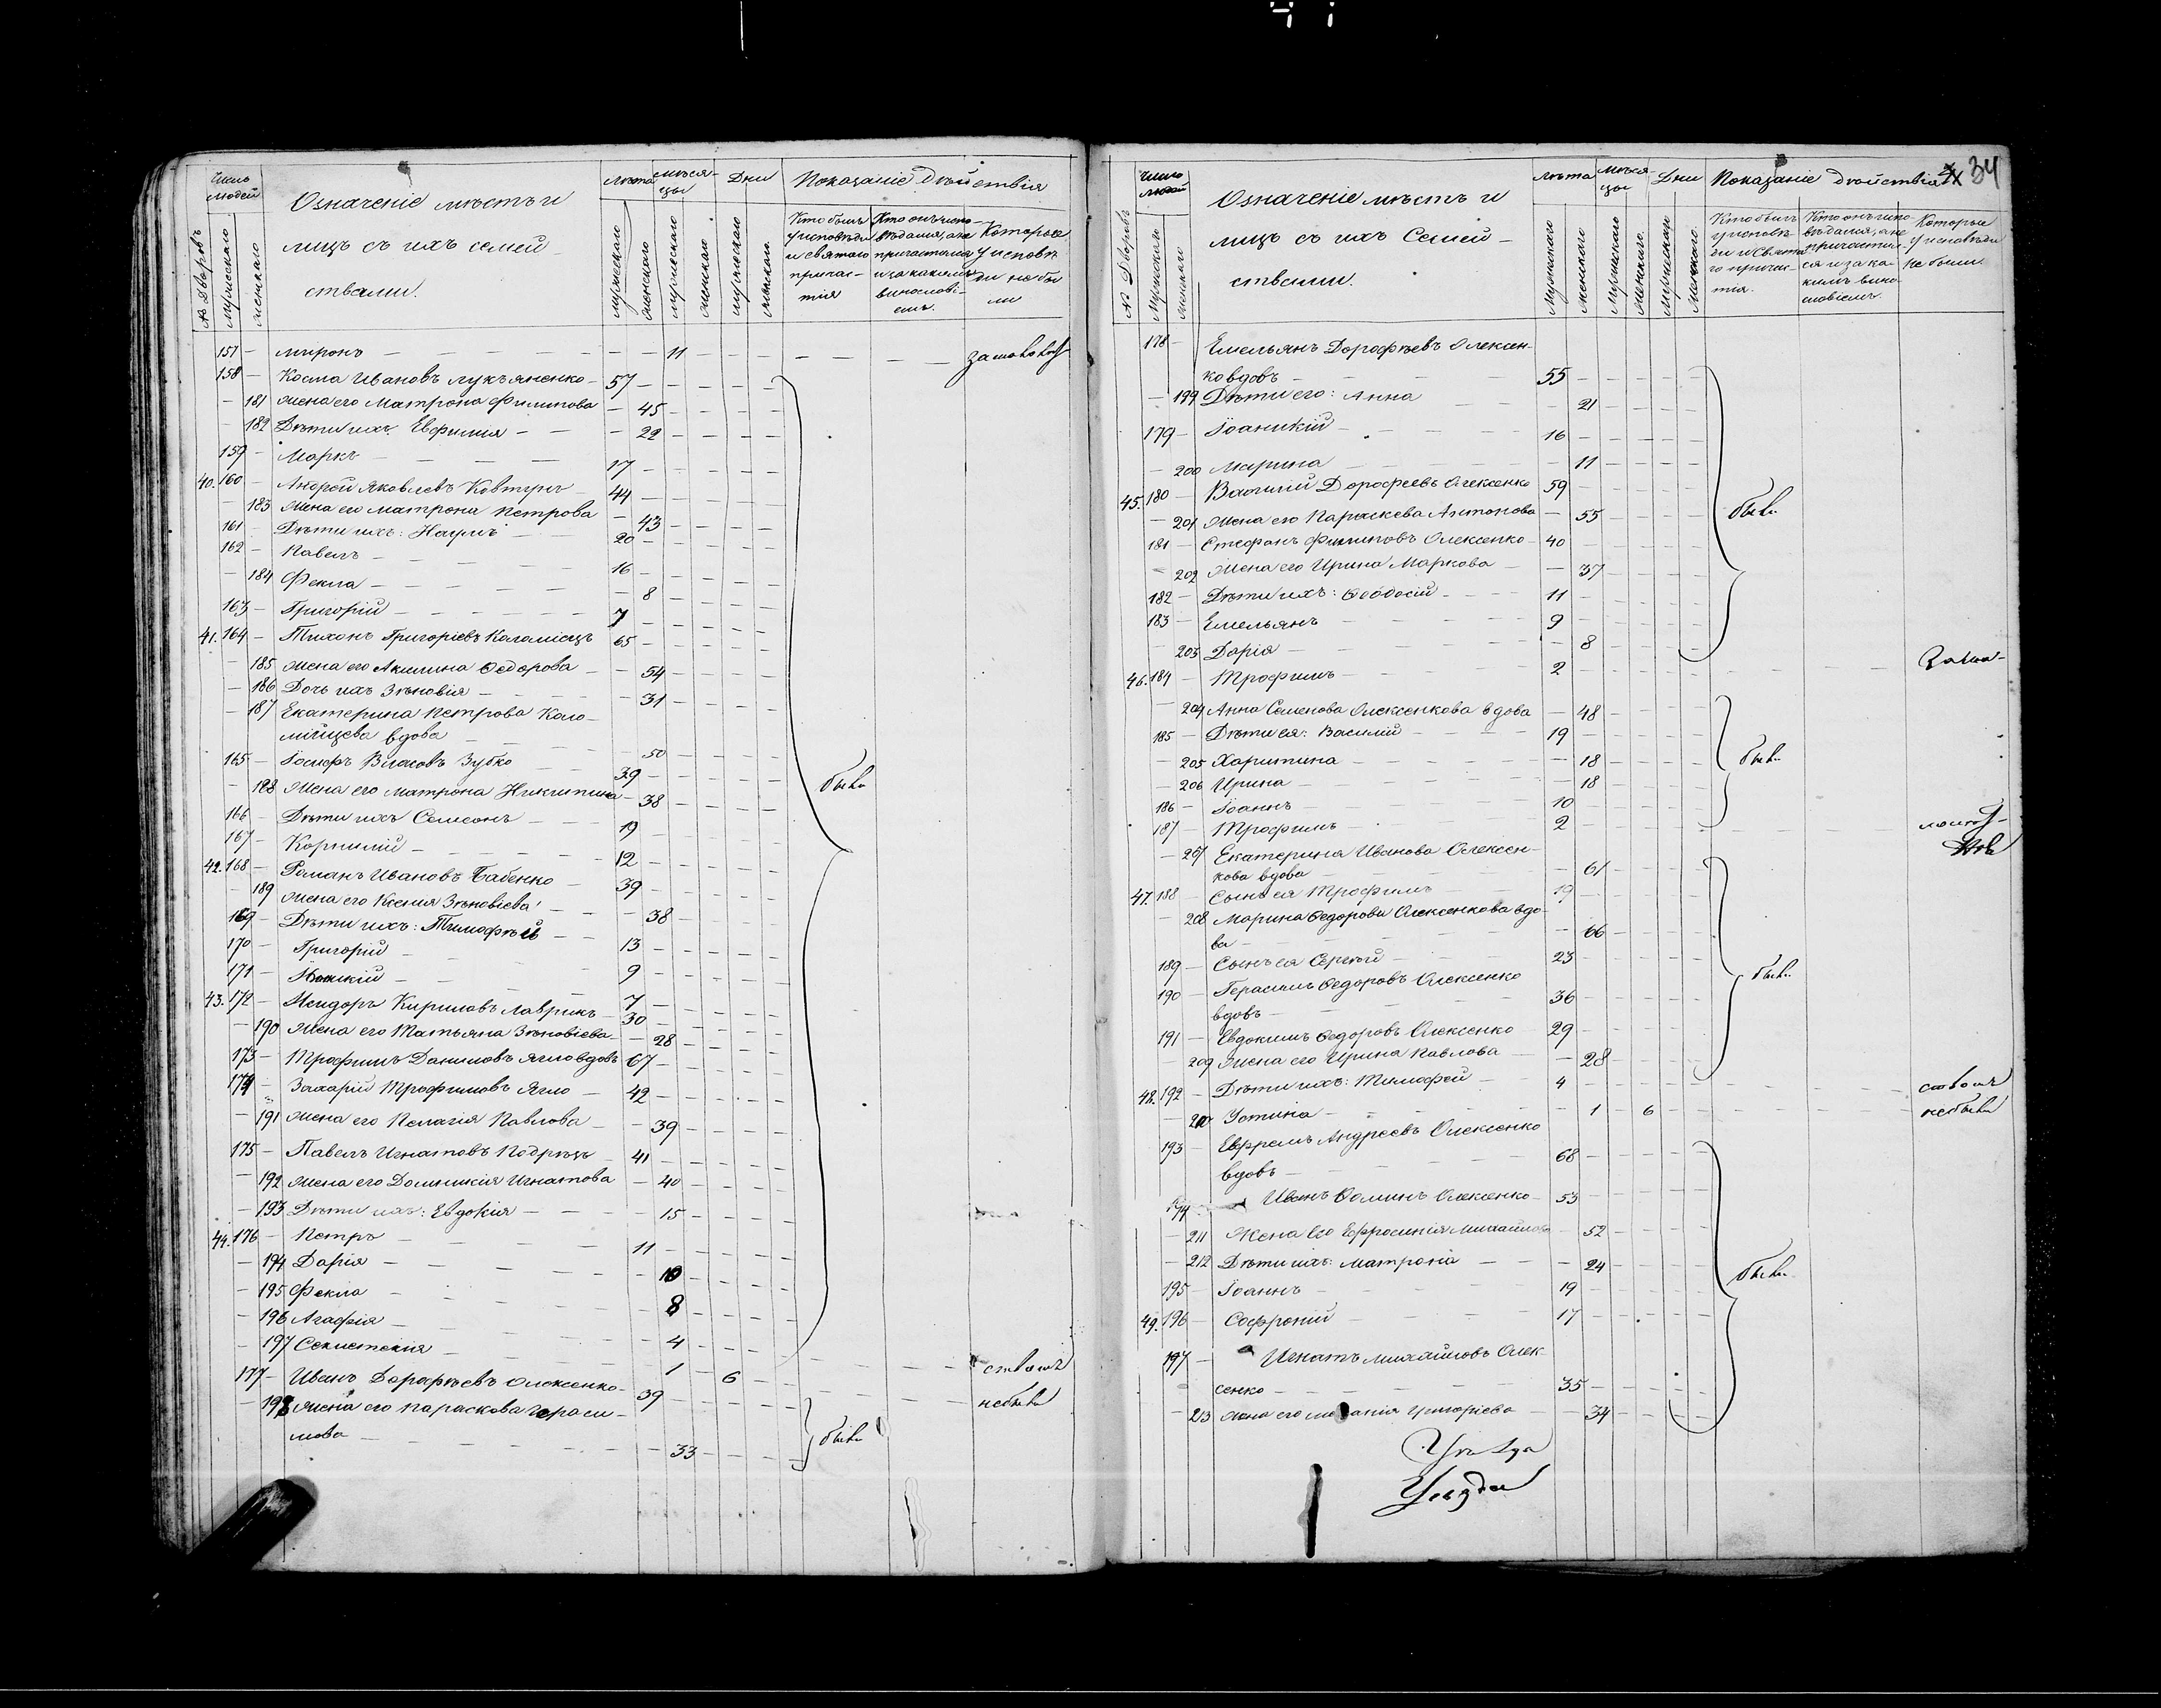 Число людей
№ Дворовъ
Мужескаго
Женскаго
Означеніе мѣстъ и
лицъ съ ихъ семей-
ствами.
Лѣта
мѣся-
цы
Дни
мужескаго
женскаго
мужескаго
женскаго
мужескаго
женскаго
Показаніе дѣйствія
Кто былъ
у исповѣди
и святаго
причас-
тія
Кто онъ испо-
вѣдался, а не
причастился
и за какимъ
винословi-
емъ.
Которые
у исповѣ-
ди не бы-
ли
157 - Миронъ - 11 -
158 - Косма Ивановъ Лукъяненко - 57 -
- 181 Жена его Матрона Филипова - 45 -
- 182 Дѣти ихъ: Евфимія - 22 -
159 - Маркъ - 17 -
40. 160 - Андрей Яковлевъ Ковтунъ - 44 -
- 183 Жена его Матрона Петрова - 43 -
161 - Дѣти ихъ: Наумъ - 20 -
162 - Павелъ - 16 -
- 184 Фекла - 8 -
163 - Григорій - 7 -
41. 164 - Тихонъ Григоріевъ Каламіецъ 65 -
- 185 Жена его Акилина Федорова - 54 -
- 186 Дочь ихъ Зѣновія - 31 -
- 187 Екатерина Петрова Коло-
мійцева вдова - 50 -
165 - Іосифъ Власовъ Зубко 39 -
- 188 Жена его Матрона Никитина - 38 -
166 - Дѣти ихъ Самсонъ - 19 -
167 - Корнилій - 12 -
42. 168 - Романъ Ивановъ Бабенко - 39 -
- 189 Жена его Ксенія Зѣновіева - 38 -
169 - Дѣти ихъ: Тимофѣй - 13 -
170 - Григорій - 9 -
171 - 7 -
43. 172 - Исидоръ Кириловъ Лаврикъ - 30
- 190 Жена его Татьяна Зѣновіева - 28 -
173 - Трофимъ Даниловъ Ягло вдовъ 67 -
174 - Захарій Трофимовъ Ягло - 42 -
- 191 Жена его Пелагія Павлова - 39 -
175 - Павелъ Игнатовъ Подрѣзъ - 41 -
- 192 Жена его Домникія Игнатова - 40 -
- 193 Дѣти ихъ: Евдокія - 15 -
44. 176 - Петръ - 11 -
- 194 Дарія - 10 -
- 195 Фекла - 8 -
- 196 Агафія - 4 -
- 197 - 1 - 6 -
177 - Иванъ Дорофѣевъ Олексенко - 39 -
- 198 Жена его Параскова Гераси-
мова - 33 -
были
небыли
были
34
Число
людей
№ Дворовъ
Мужескаго
Женскаго
Означеніе мѣстъ и
лицъ съ ихъ Семей-
ствами.
Лѣта
Мѣся-
цы
Дни
Мужескаго
Женскаго
Мужескаго
Женскаго
Мужескаго
Женскаго.
Показаніе дѣйствія
Кто былъ
у исповѣ-
ди и Свята-
го причас-
тія.
Кто онъ испо-
вѣдался, а не
причастил-
ся и за ка-
кимъ вино-
словіемъ.
Которые
у исповѣди
не были.
178 - Емельянъ Дорофѣевъ Олексен-
ко вдовъ - 55 -
- 199 Дѣти его: Анна - 21 -
179 - Іоаникій - 16 -
- 200 Марина - 11 -
45. 180 - Василій Дорофеевъ Олексенко 59 -
- 201 Жена его Параскева Антонова - 55 -
181 - Стефанъ Филиповъ Олексенко - 40 -
- 202 Жена его Ирина Маркова - 37 -
182 - Дѣти ихъ: Феодосій - 11 -
183 - Емельянъ - 9 -
- 203 Дарія - 8 -
46. 184 - Трофимъ - 2 -
- 204 Анна Семенова Олексенкова вдова - 48 -
185 - Дѣти ея: Василій - 19 -
- 205 Харитина - 18 -
- 206 Ирина - 18 -
186 - Іоаннъ - 10 -
187 - Трофимъ - 2 -
- 207 Екатерина Иванова Олексен-
кова вдова - 61 -
47. 188 - Сынъ ея Трофимъ - 19 -
- 208 Марина Федорова Олексенкова вдо-
ва - 66 -
189 - Сынъ ея Сергѣй - 23 -
190 - Герасимъ Федоровъ Олексенко
вдовъ - 36 -
191 - Евдокимъ Федоровъ Олексенко 29 -
- 209 Жена его Ирина Павлова - 28 -
48. 192 - Дѣти ихъ: Тимофей - 4 -
- 210 Устина - 1 - 6 -
193 - Ефремъ Андреевъ Олексенко
вдовъ - 68 -
194 - Иванъ Фоминъ Олексенко - 53 -
- 211 Жена Его Ефросинія Михайлова - 52 -
- 212 Дѣти ихъ: Матрона - 24 -
195 - Іоаннъ - 19 -
49. 196 - Софроній - 17 -
197 - Игнатъ Михайловъ Олек-
сенко - 35 -
- 213 Жена его Григоріева - 34 -
были
были
были
небыли
были